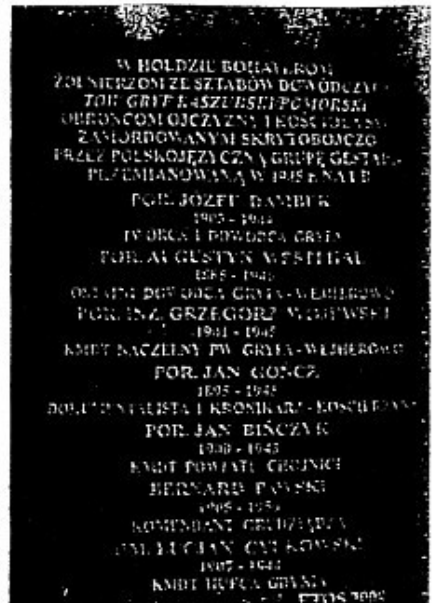 W HOŁDZIE BOHATEROM
ŻOŁNIERZOM ZE SZTABÓW DOWÓDCZYCH
TOW GRYF KASZUBSKI/POMORSKI
OBROŃCOM OJCZYZNY I KOŚCIOŁA
ZAMORDOWANYM SKRYTOBÓJCZO
PRZEZ POLSKOJĘZYCZNĄ GRUPĘ GESTAPO
PRZEMIANOWANĄ W 1945 R. NA UB
POR. JÓZEF DAMBEK
1903 - 1944
TWÓRCA I DOWÓDCA GRYFA
POR. AUGUSTYN WESTPHAL
1885 - 1946
OSTATNI DOWÓDCA GRYFA - WEJHEROWO
POR. INŻ. GRZEGORZ WOJEWSKI
- 1945
KMDT NACZELNY PW. GRYFA - WEJHEROWO
POR. JAN GOŃCZ
1895 - 1945
DOKUMENTALISTA I KRONIKARZ - KOŚCIERZYNA
POR. JAN BIŃCZYK
- 1945
KMDT POWIATU CHOJNICE
BERNARD PAWSKI
KOMENDANT GRUDZIĄDZA
LUCJAN CYLKOWSKI
1907 - 1944
KMDT HUFCA GDYNIA